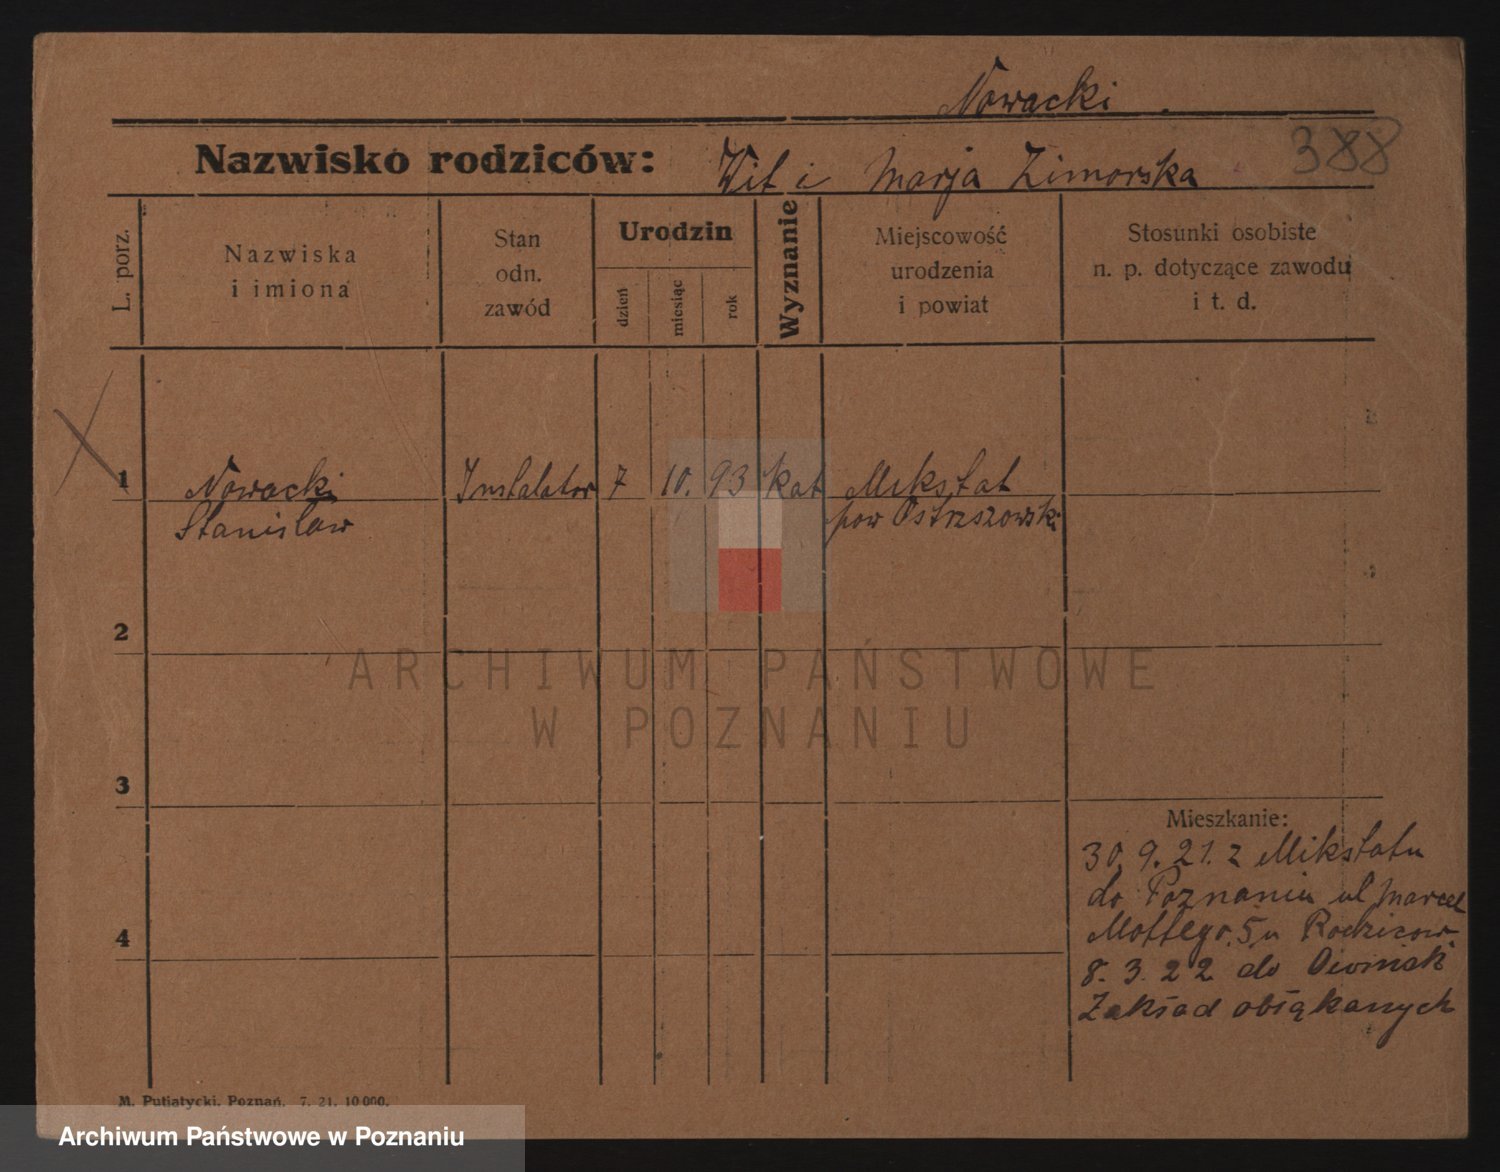 Nowacki
Nazwisko rodziców: Wit i Marja Zimorska 388
L. porz.
Nazwiska
i imiona
Stan
odn.
zawód
Urodzin
dzień
miesiąc
rok
Wyznanie
Miejscowość
urodzenia
i powiat
Stosunki osobiste
n. p. dotyczące zawodu
i t. d.
1 Nowacki Instalator 7 10. 93 kat Mikstat
Stanisław pow Ostrzeszowski
2
ARCHIWUM PAŃSTWOWE
W POZNANIU
3
Mieszkanie:
30. 9. 21. z Mikstatu
do Poznania ul Marcel
Mottego 5 u Rodziców
4
8. 3. 22 do Owinsk
Zakład obłąkanych
M. Putiatycki, Poznań. 7. 21. 10000.
Archiwum Państwowe w Poznaniu